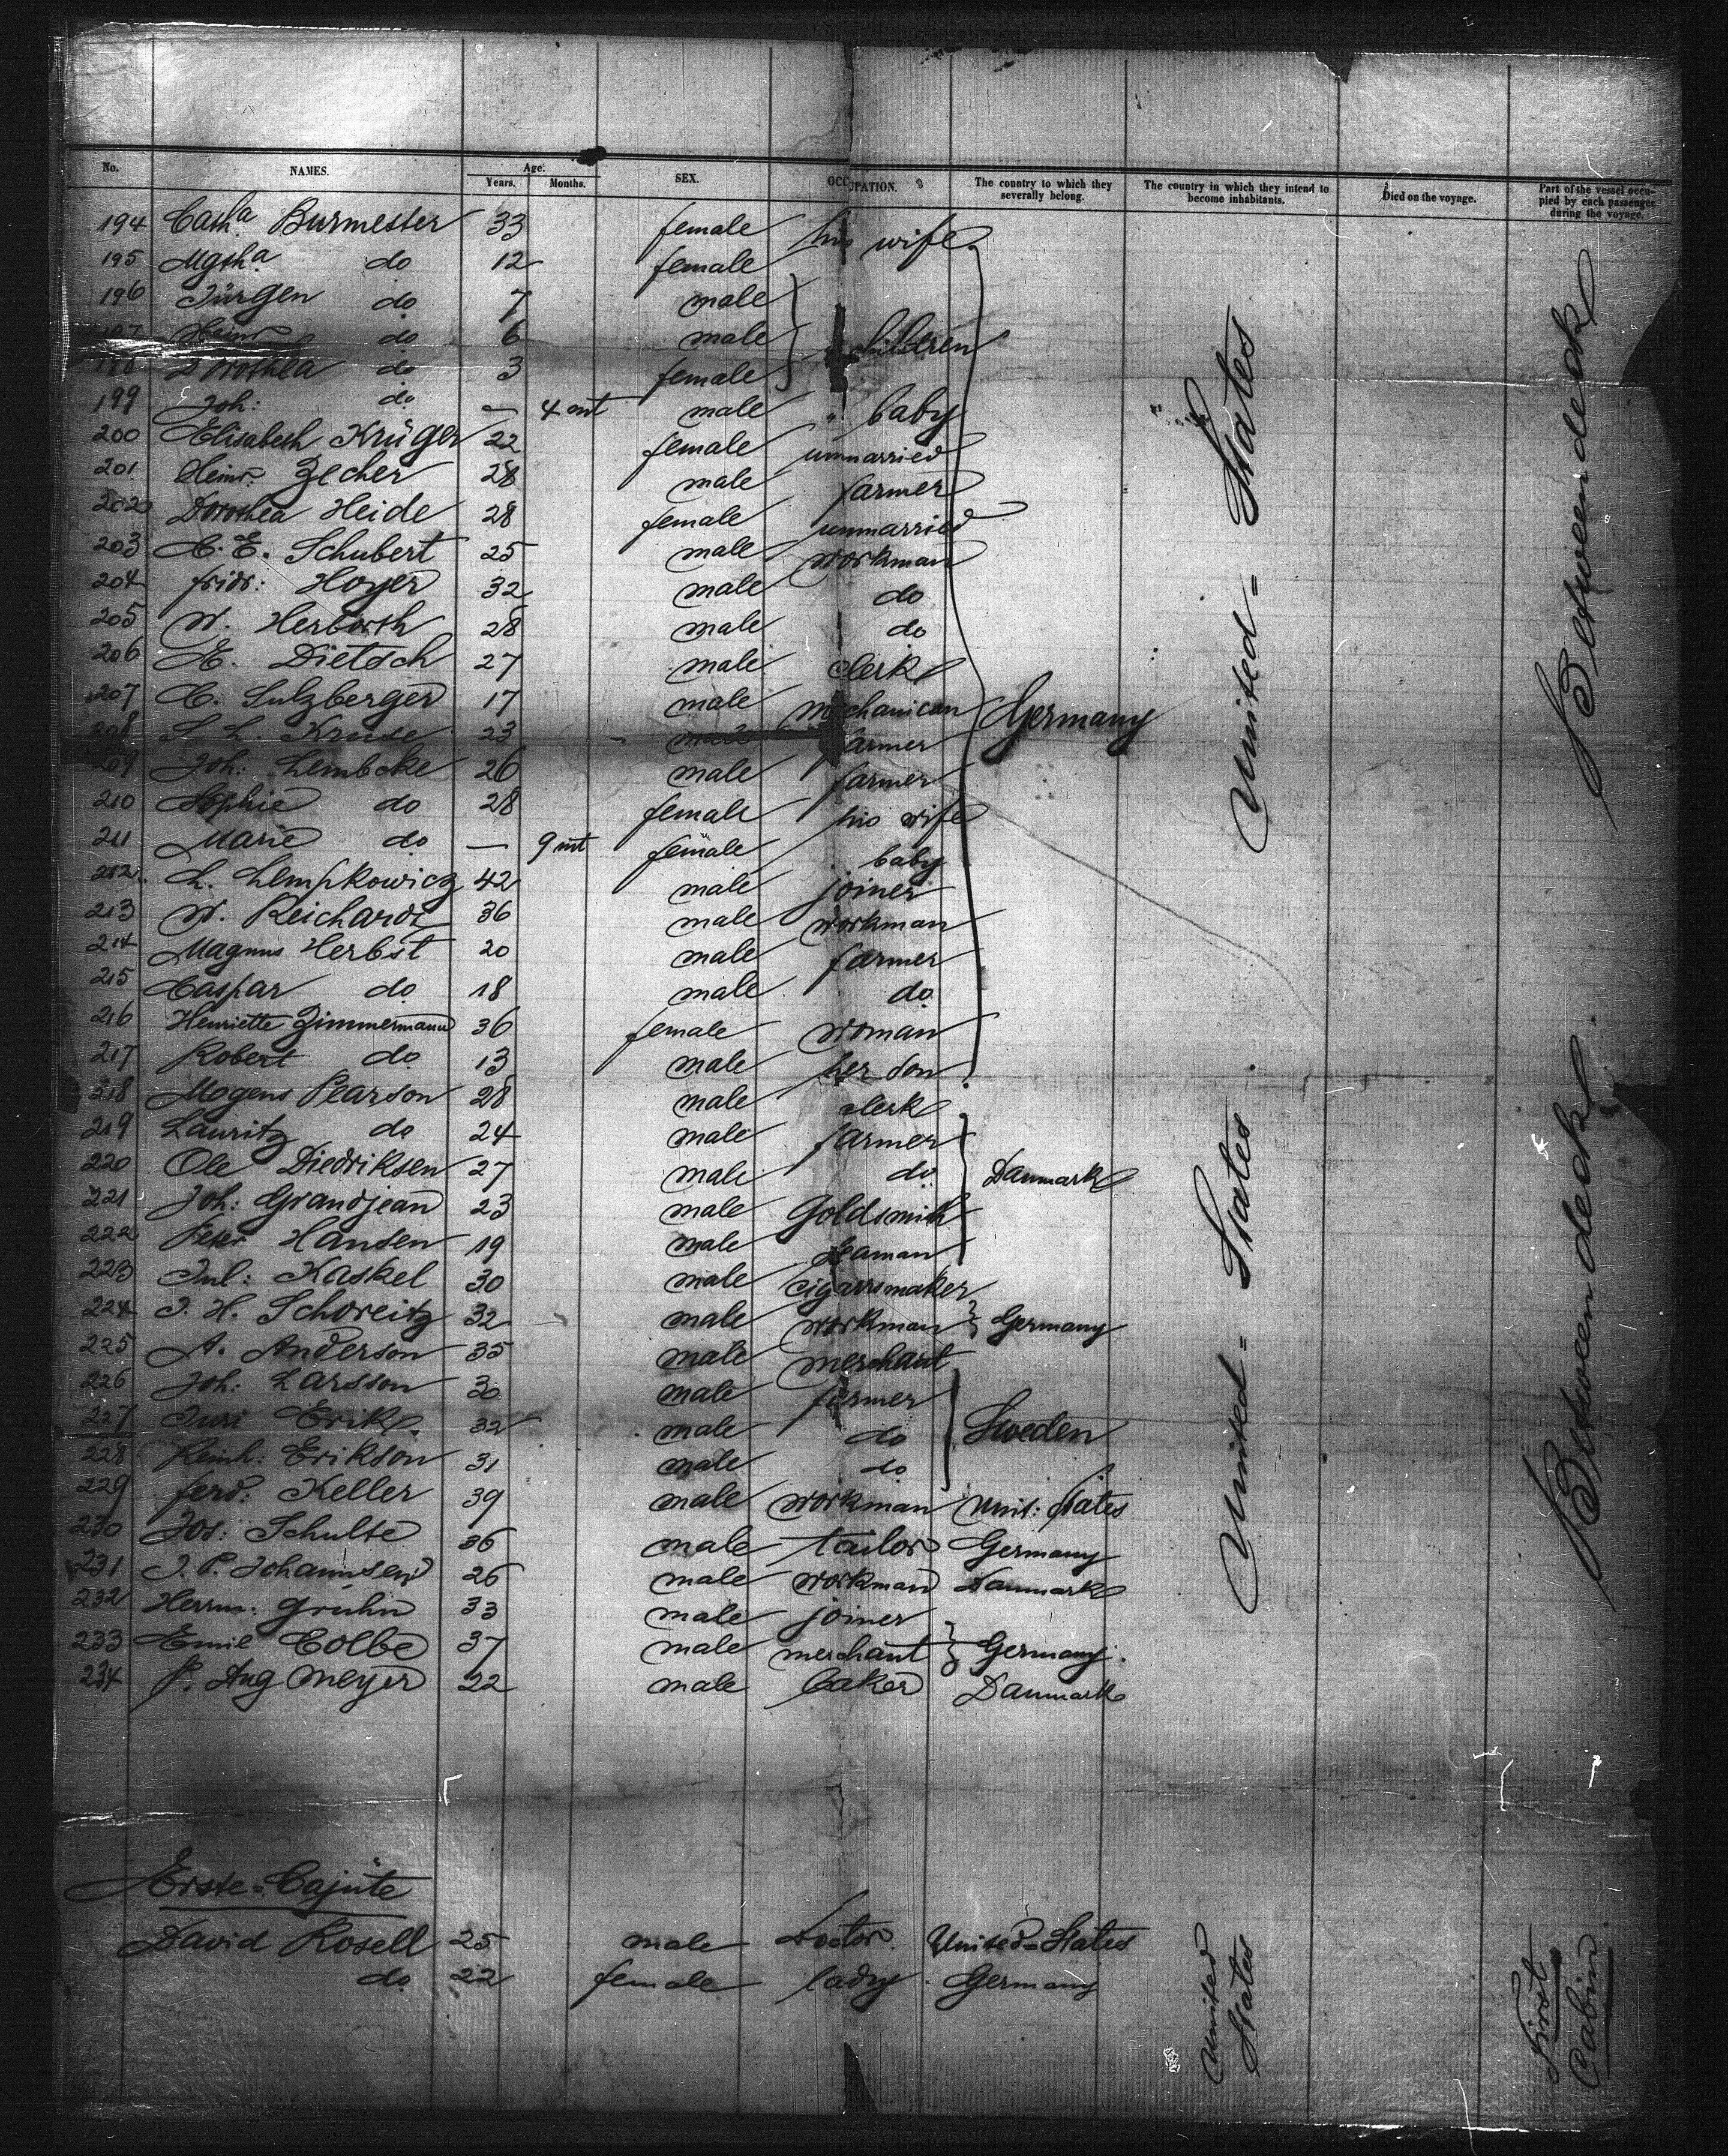 No. NAMES. Age. Years. Months. SEX. OCCUPATION. The country to which they severally belong. The country in which they intend to become inhabitants. Died on the voyage. Part of the vessel occupied by each passenger during the voyage.
194 Cath.a Burmester 33 female his wife
195 Mgth.a do 12 female
196 Jürgen do 7 male
197 Heinr do 6 male children
198 Dorothea do 3 female
199 Joh: do — 4 mt male " baby
200 Elisabeth Krüger 22 female unmarried
201 Heinr. Zecher 28 male farmer
202 Dorothea Heide 28 female unmarried
203 C. E. Schubert 25 male workman
204 fridr: Hoyer 32 male do
205 W. Herborth 28 male do
206 E. Dietsch 27 male clerk
207 C. Sulzberger 17 male mechanican Germany
208 S. L. Kruse 23 male farmer
209 Joh: Lembcke 26 male farmer
210 Sophie do 28 female his wife
211 Marie do — 9 mt female baby
212 L. Lempkowicz 42 male joiner
213 W. Reichardt 36 male workman
214 Magnus Herbst 20 male farmer
215 Caspar do 18 male do
216 Henriette Zimmermann 36 female woman
217 Robert do 13 male her son
218 Mogens Pearson 28 male clerk
219 Lauritz do 24 male farmer
220 Ole Diedriksen 27 male do Danmark
221 Joh: Grandjean 23 male Goldsmith
222 Peter Hansen 19 male seaman
223 Jul: Kaskel 30 male cigarrsmaker
224 J. H. Schoreitz 32 male workman Germany
225 A. Anderson 35 male merchant
226 Joh: Larsson 30 male farmer
227 Juri Erik 32 male do Sweden
228 Reinh: Erikson 31 male do
229 ferd: Keller 39 male workman Unit: States
230 Jos: Schulte 36 male tailor Germany
231 J. P. Johannsen 26 male workman Danmark
232 Herrm: Gruhn 33 male joiner
233 Emil Colbe 37 male merchant Germany.
234 P. Aug Meyer 22 male baker Danmark
United = States
United = States
Between deck
Between deck
Erste = Cajüte
David Rosell 25 male Doctor. United = States
do 22 female lady. Germany
United States
First Cabin